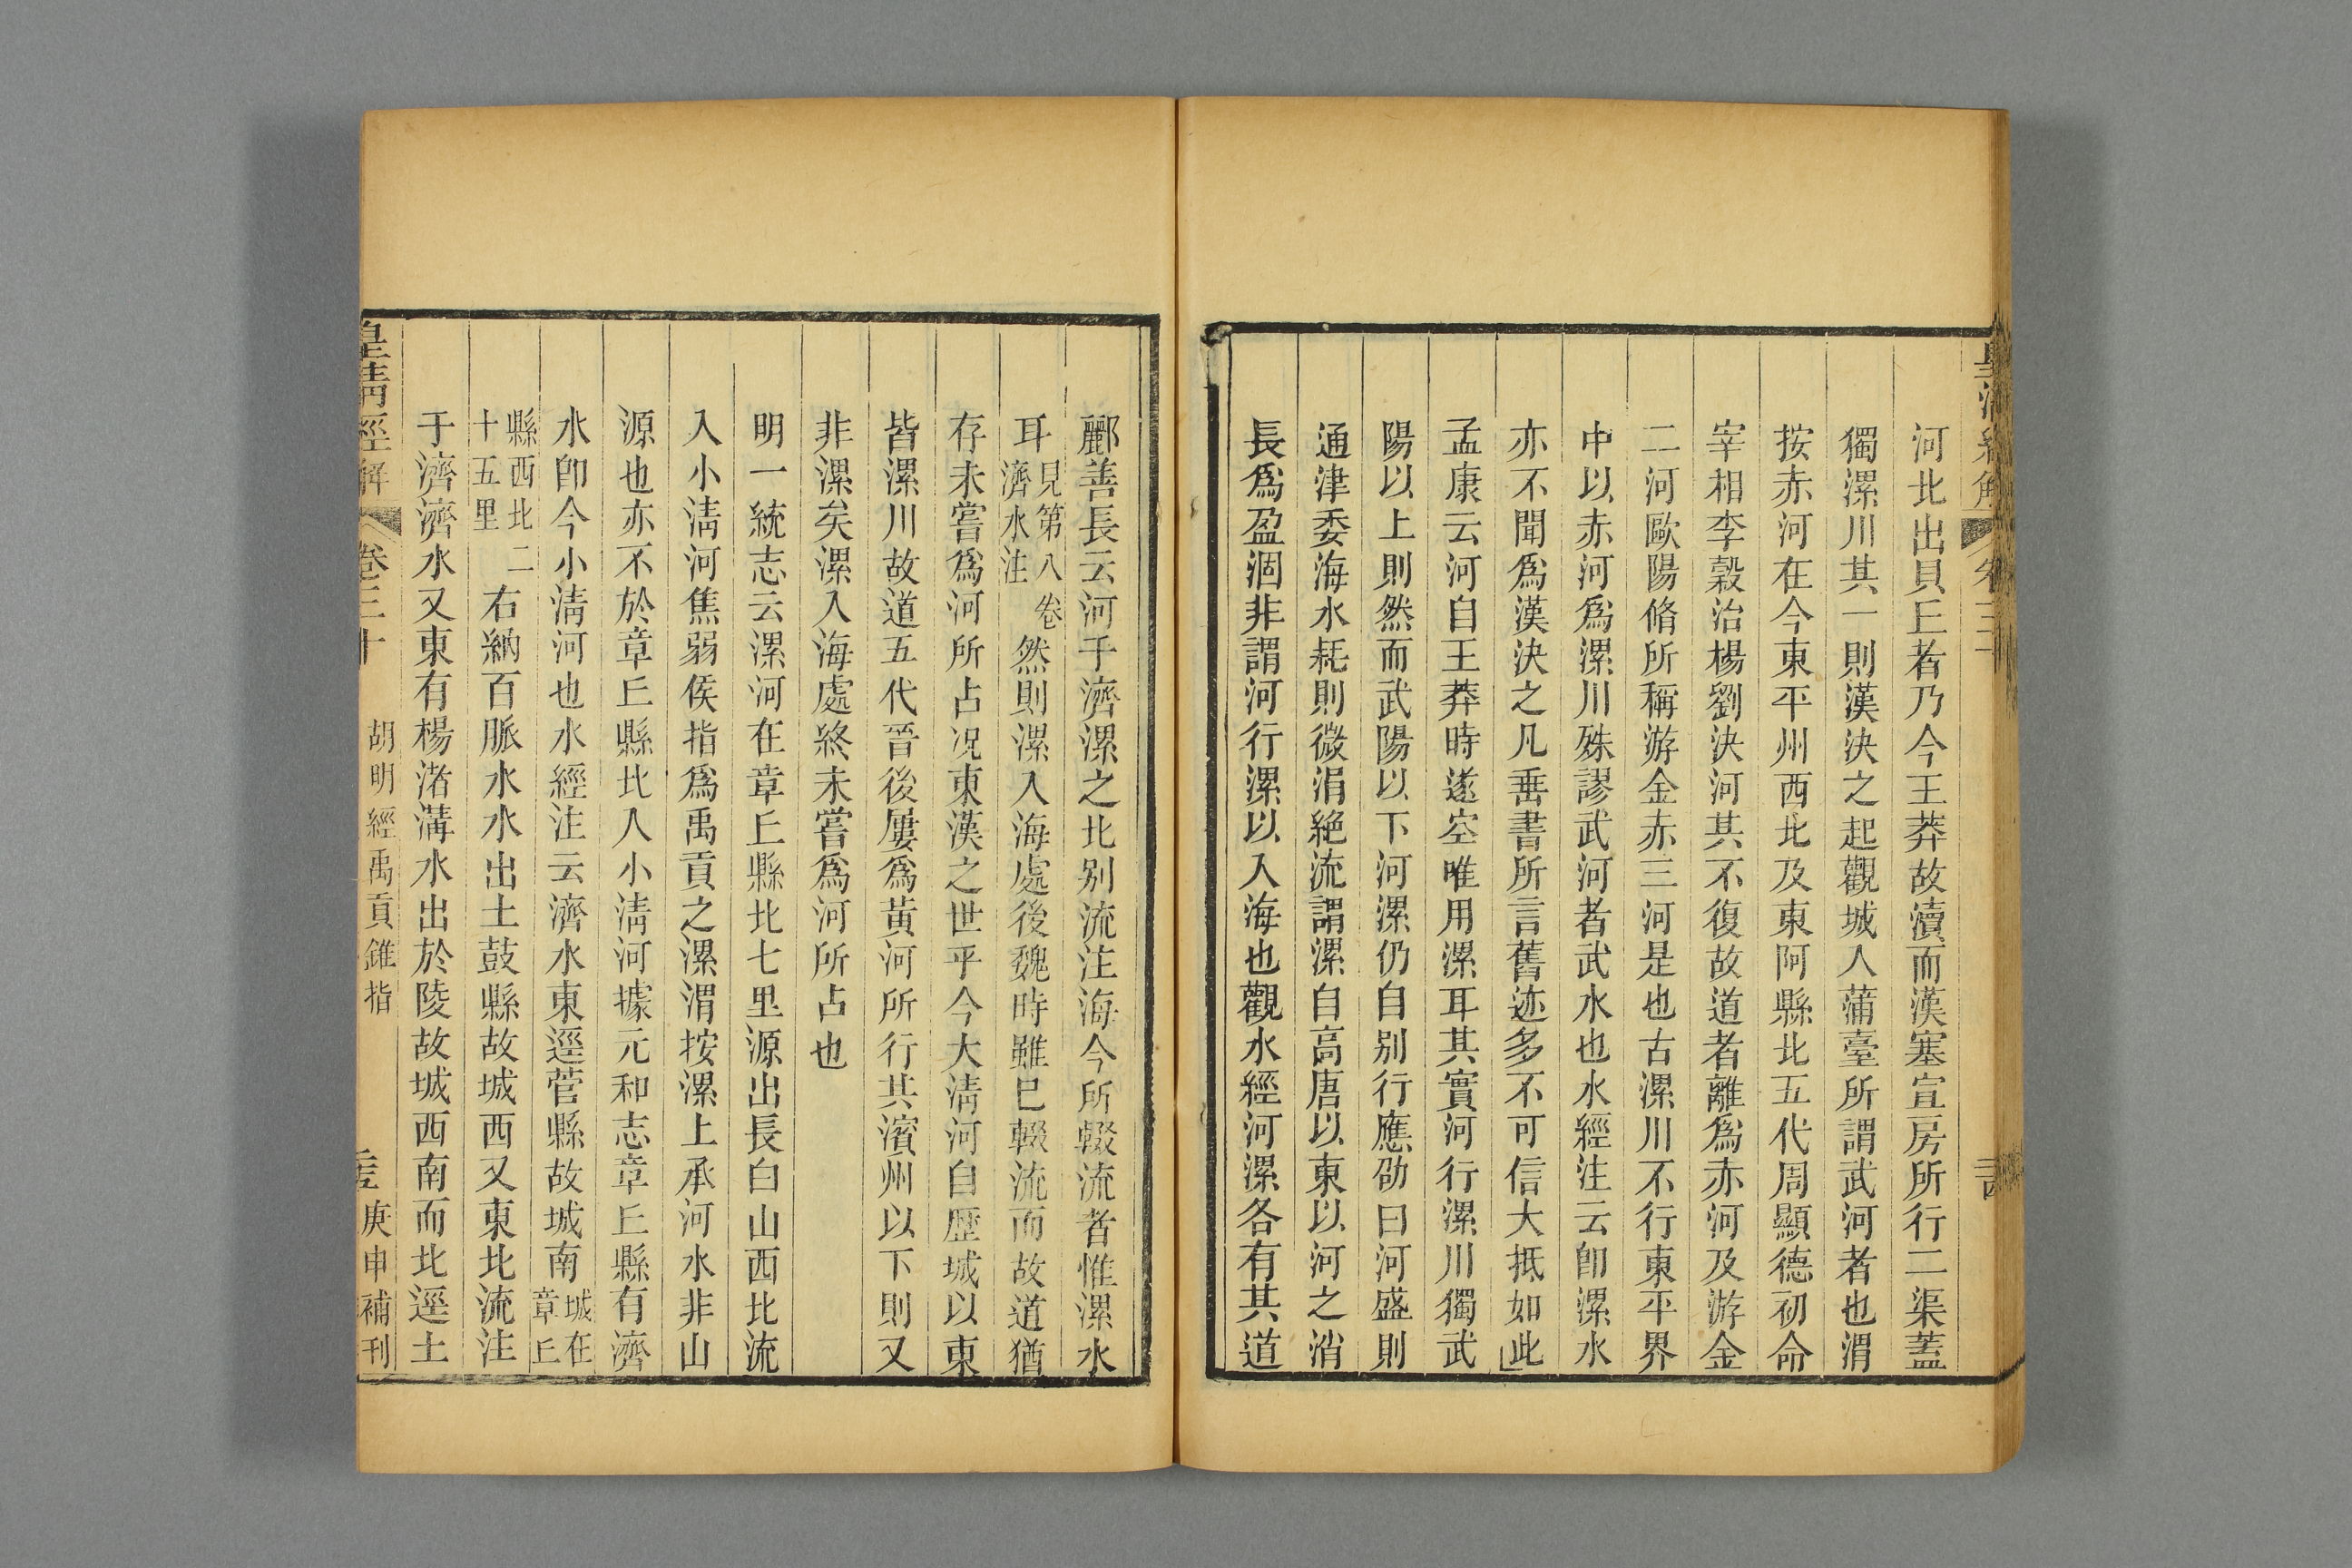 河北出貝㐀者乃今王莽故瀆而漢塞宣房所行二渠蓋
獨漯川其一則漢決之起觀城入蒲臺所謂武河者也渭
按赤河在今東平州西北及東阿縣北五代周顯德初命
宰相李穀治楊劉決河其不復故道者離爲赤河及游金
二河歐陽脩所稱游金赤三河是也古漯川不行東平界
中以赤河爲漯川殊謬武河者武水也水經注云卽漯水
亦不聞爲漢決之凡垂書所言舊迹多不可信大抵如此
孟康云河自王莽時遂空唯用漯耳其實河行漯川獨武
陽以上則然而武陽以下河漯仍自别行應劭曰河盛則
通津委海水耗則微涓絶流謂漯自高唐以東以河之消
長爲盈涸非謂河行漯以入海也觀水經河漯各有其道
酈善長云河于濟漯之北别流注海今所輟流者惟漯水
耳見第八卷濟水注然則漯入海處後魏時雖已輟流而故道猶
存未嘗爲河所占况東漢之世乎今大淸河自歷城以東
皆漯川故道五代晉後屢爲黃河所行其濱州以下則又
非漯矣漯入海處終未嘗爲河所占也
明一統志云漯河在章㐀縣北七里源出長白山西北流
入小淸河焦弱侯指爲禹貢之漯渭按漯上承河水非山
源也亦不於章㐀縣北入小淸河據元和志章㐀縣有濟
水卽今小淸河也水經注云濟水東逕菅縣故城南城在章㐀
縣西北二十五里右納百脈水水出土鼓縣故城西又東北流注
于濟濟水又東有楊渚溝水出於陵故城西南而北逕土
皇淸經解 卷三十 胡明經禹貢錐指 庚申補刊